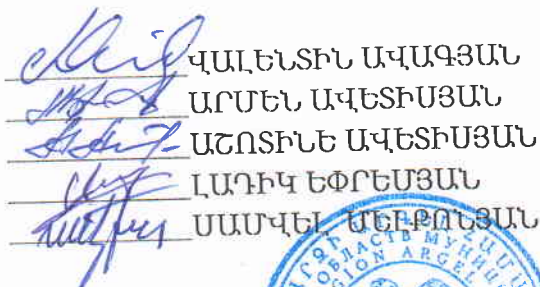 ՎԱԼԵՆՏԻՆ ԱՎԱԳՅԱՆ
ԱՐՄԵՆ ԱՎԵՏԻՍՅԱՆ
ԱՇՈՏԻՆԵ ԱՎԵՏԻՍՅԱՆ
ԼԱԴԻԿ ԵՓՐԵՄՅԱՆ
ՍԱՄՎԵԼ ՄԵԼՔՈՆՅԱՆ
ОБЛАСТЬ
REGION ARGEL